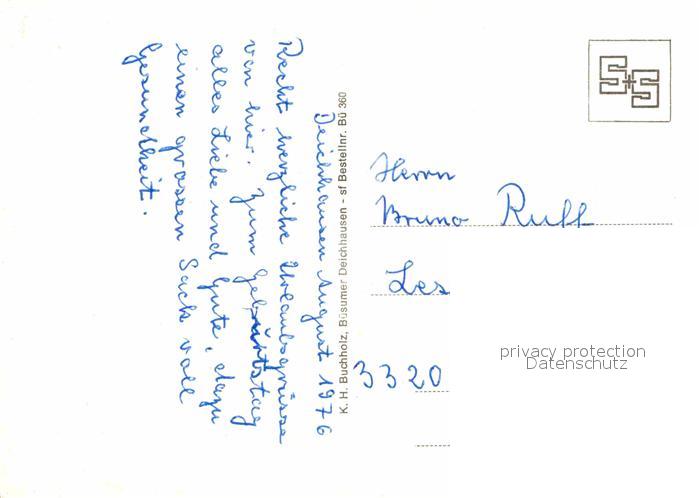 Deichhausen August 1976
Recht herzliche Urlaubsgrüsse
von hier. Zum Geburtstag
alles Liebe und Gute, dazu
einen grossen Sack voll
Gesundheit.
K. H. Buchholz, Büsumer Deichhausen - sf Bestellnr. Bü 360
S+S
Herrn
Bruno Rull
Les
3320
privacy protection
Datenschutz